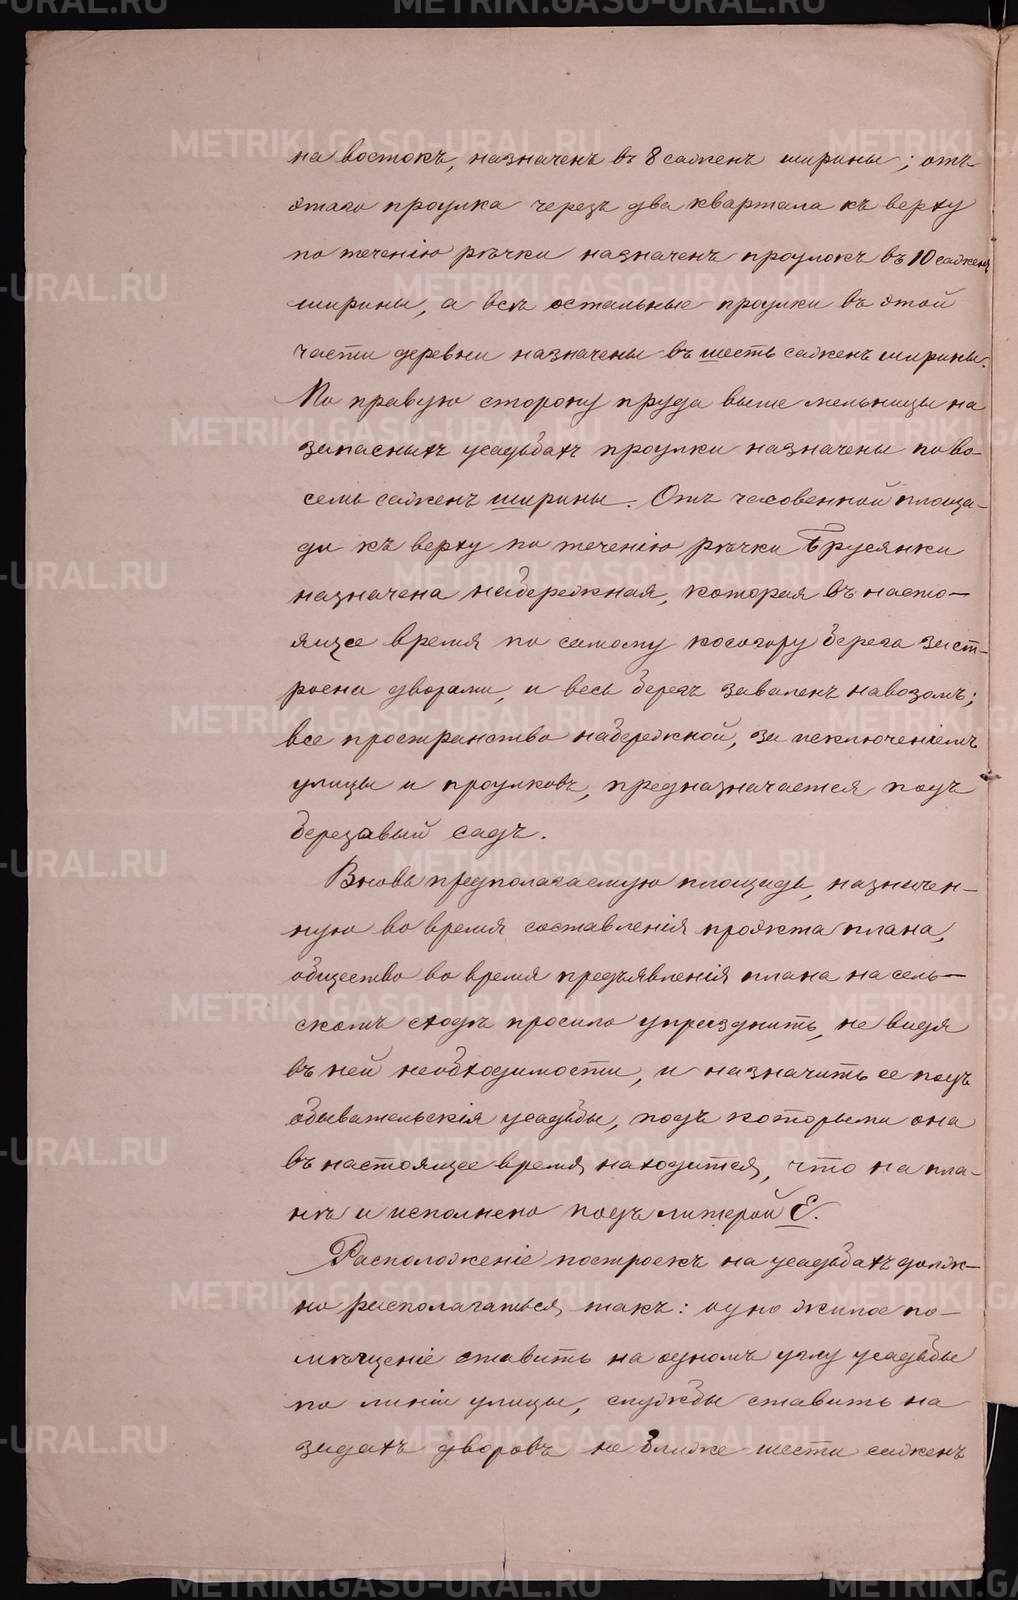 на востокъ, назначенъ въ 8 саженъ ширины; отъ
этаго проулка черезъ два квартала къ верху
по теченію рѣчки назначенъ проулокъ въ 10 саженъ
ширины, а всѣ остальные проулки въ этой
части деревни назначены въ шесть саженъ ширины.
По правую сторону пруда выше мельницы на
запасныхъ усадьбахъ проулки назначены по во-
семь саженъ ширины. Отъ часовенной площа-
ди къ верху по теченію рѣчки Брусянки
назначена набережная, которая въ насто-
ящее время по самому косогору берега заст-
роена дворами, и весь берегъ заваленъ навозомъ;
все пространство набережной, за исключеніемъ
улицы и проулковъ, предназначается подъ
березавый садъ.
Вновь предполагаемую площадь, назначен-
ную во время составленія проэкта плана,
общество во время предъявленія плана на сель-
скомъ сходѣ просило упразднить, не видя
въ ней необходимости, и назначить ее подъ
обывательскія усадьбы, подъ которыми она
въ настоящее время находится, что на пла-
нѣ и исполнено подъ литерой Е.
Расположеніе построекъ на усадьбахъ долж-
но располагаться такъ: одно жилое по-
мѣщеніе ставить на одномъ углу усадьбы
по линіи улицы, службы ставить на
задахъ дворовъ не ближе шести саженъ
METRIKI.GASO-URAL.RU